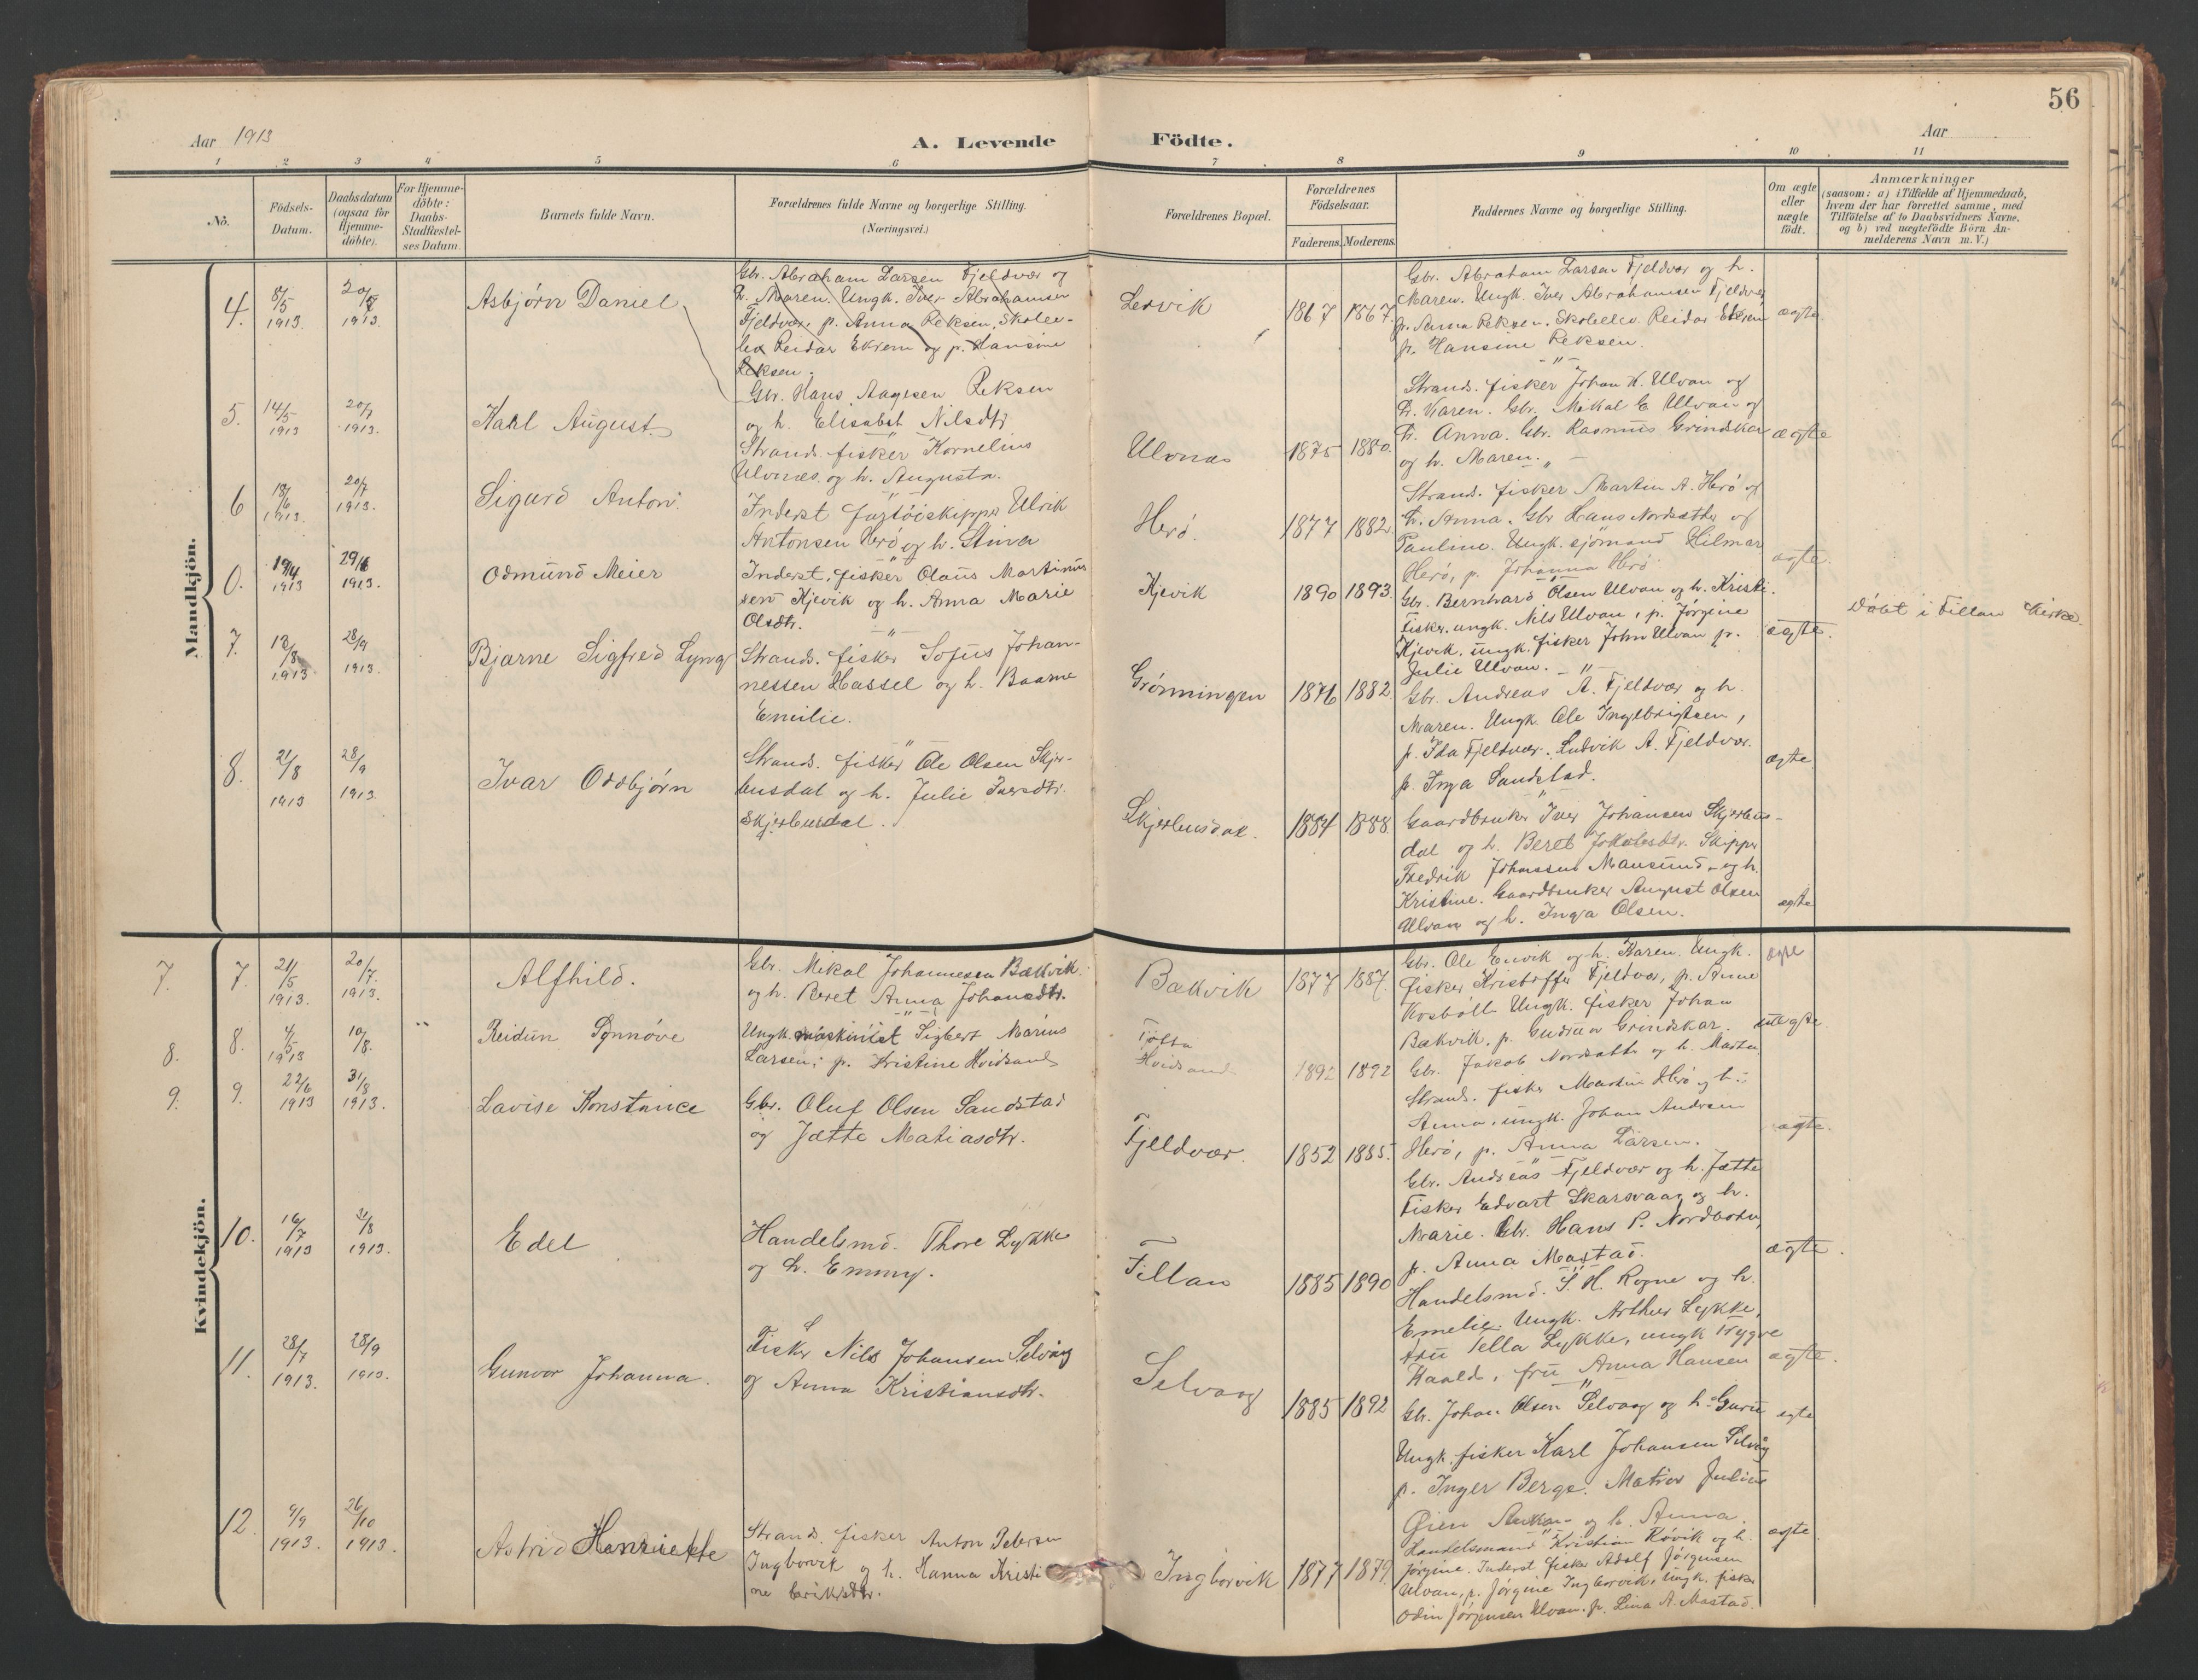 56
Aar 1913
A. Levende
Födte.
Aar
1 2 3 4 5 6 7 8 9 10 11
No.
Födsels-Datum.
Daabsdatum (ogsaa for Hjemme-döbte).
For Hjemme-döbte: Daabs-Stadfæstel-ses Datum.
Barnets fulde Navn.
Forældrenes fulde Navne og borgerlige Stilling. (Næringsvei.)
Forældrenes Bopæl.
Forældrenes Födselsaar.
Faderens. Moderens.
Faddernes Navne og borgerlige Stilling.
Om ægte eller uægte födt.
Anmærkninger
(saasom: a) i Tilfælde af Hjemmedaab,
hvem der har forrettet samme, med
Tilföielse af to Daabsvidners Navne.
og b) ved uægtefödte Börn An-
melderens Navn m. V.)
Mandkjön.
4. 8/5 1913. 20/7 1913.
Asbjørn Daniel
Gbr. Abraham Larsen Fjeldvær og
h. Maren. Ungk. Iver Abrahamsen
Fjeldvær, p. Anna Reksen, Skolee-
lev Reidar Ekrem og p. Hansine
Reksen.
Gbr. Hans Aagesen Reksen
og h. Elisabet Nilsdtr
Ledvik
1867 1867
Gbr. Abraham Larsen Fjeldvær og h.
Maren. Ungk. Iver Abrahamsen Fjeldvær
p. Anna Reksen. Skoleelev Reidar Ekrem
p. Hansine Reksen.
ægte
5. 14/5 1913 20/7 1913.
Karl August
Strands. fisker Kornelius
Ulvnes og h. Augusta.
Ulvnes
1875 1880.
Strands. fisker Johan K. Ulvan og
h. Karen. Gbr. Mikal E Ulvan og
h. Anna. Gbr. Rasmus Grindskar
og h. Maren.
ægte
6 18/6 1913. 20/7 1913.
Sigurd Anton.
Inderst fartöiskipper Ulrik
Antonsen Herö og h. Stina
Herö.
1877 1882
Strands. fisker Martin A. Herö og
h. Anna. Gbr Hans Nordsæther og
Pauline. Ungk. sjömand Hilmar
Herö, p. Johanna Herö.
ægte.
0. 19/4 1913 29/6 1913.
Odmund Meier
Inderst. fisker Olaus Martinus
sen Kjevik og h. Anna Marie
Olsdtr.
Kjevik
1890 1893.
Gbr. Bernhard Olsen Ulvan og h. Kristi.
Fisker, ungk. Nils Ulvan, p. Jørgine
Kjevik. ungk. fisker John Ulvan p.
Julie Ulvan.
ægte.
Døbt i Fillan Kirke.
7. 13/8 1913 28/9 1913.
Bjarne Sigfred Lyng
Strands. fisker Sofus Johan-
nessen Hassel og h. Baarne
Emilie.
Grönningen
1876 1882
Gbr. Andreas A. Fjeldvær og h.
Maren. Ungk. Ole Ingebrigtsen,
p. Ida Fjeldvær. Ludvik A. Fjeldvær.
p. Inga Sandstad.
ægte.
8. 21/8 1913 28/9 1913
Ivar Oddbjørn
Strands. fisker Ole Olsen Skjer-
busdal og h. Julie Iversdtr.
Skjerbusdal.
Skjerbusdal.
1884 1888.
Gaardbruker Iver Johansen Skjerbus-
dal og h. Beret Jakobsdtr. Skipper
Fredrik Johnssen Mausund og h.
Kristine. Gaardbruker August Olsen
Ulvan og h. Inga Olsen.
ægte
Kvindekjön.
7. 7. 21/5 1913. 20/7. 1913.
Alfhild.
Gbr. Mikal Johannesen Bækvik.
og h. Beret Anna Johansdtr.
Bækvik
1877 1887.
Gbr. Ole Envik og h. Karen. Ungk.
fisker Kristoffer Fjeldvær, p. Anne
Ungk. fisker Johan
Bækvik. p. Gudrun Grindskar.
ægte
8. 8. 4/5 1913 10/8.
Reidun Synnøve
Ungk. maskinist Sigbert Marius
Larsen; p. Kristine Hvidsand
Tofta
Hvidsand
1892 1892
Gbr. Jakob Nordsætter og h. Marta,
Strands. fisker Martin Herö og h.
Anna, ungk. Johan Andresen
Herö, p. Anna Larsen.
uægte
9. 9. 22/6 1913 31/8 1913.
Lavise Konstance
Gbr. Oluf Olsen Sandstad
og Jætte Matiasdtr.
Fjeldvær.
1852 1885.
Gbr. Andreas Fjeldvær og h. Jætte
Fisker Edvart Skarsvaag og h.
Marie. Gbr. Hans P. Nordbotn,
p. Anna Mastad.
ægte.
10. 16/7 1913 31/8 1913.
Edel
Handelsmd. Thore Lykke
og h. Emmy.
Fillan
1885 1890
Handelsmd. S. H. Rogne og h.
Emelie. Ungk. Arthur Lykke,
fru Tella Lykke, ungk Trygve
Kaald, fru Anna Hansen
ægte.
11. 28/7 1913. 28/9 1913.
Gunvor Johanna.
Fisker Nils Johansen Selvåg
og Anna Kristiansdtr.
Selvaag
1885 1892
Gbr. Johan Olsen Selvaag og h. Guru
Ungk. fisker Karl Johansen Selvåg
p. Inger Berge. Matros Julius
Øien og h. Anna.
ægte.
egte
12. 9/9 1913. 26/10 1913.
Astrid Henriette
Strands. fisker Anton Petersen
Ingborvik og h. Hanna Kristi
ne Eriksdtr.
Ingborvik
1877 1879.
Handelsmand Kristian Kövik og h.
Jørgine. Inderst fisker Adolf Jörgensen
Ulvan, p. Jørgine Ingborvik, ungk. fisker
Odin Jørgensen Ulvan. p. Lina A. Mastad.
ægte.